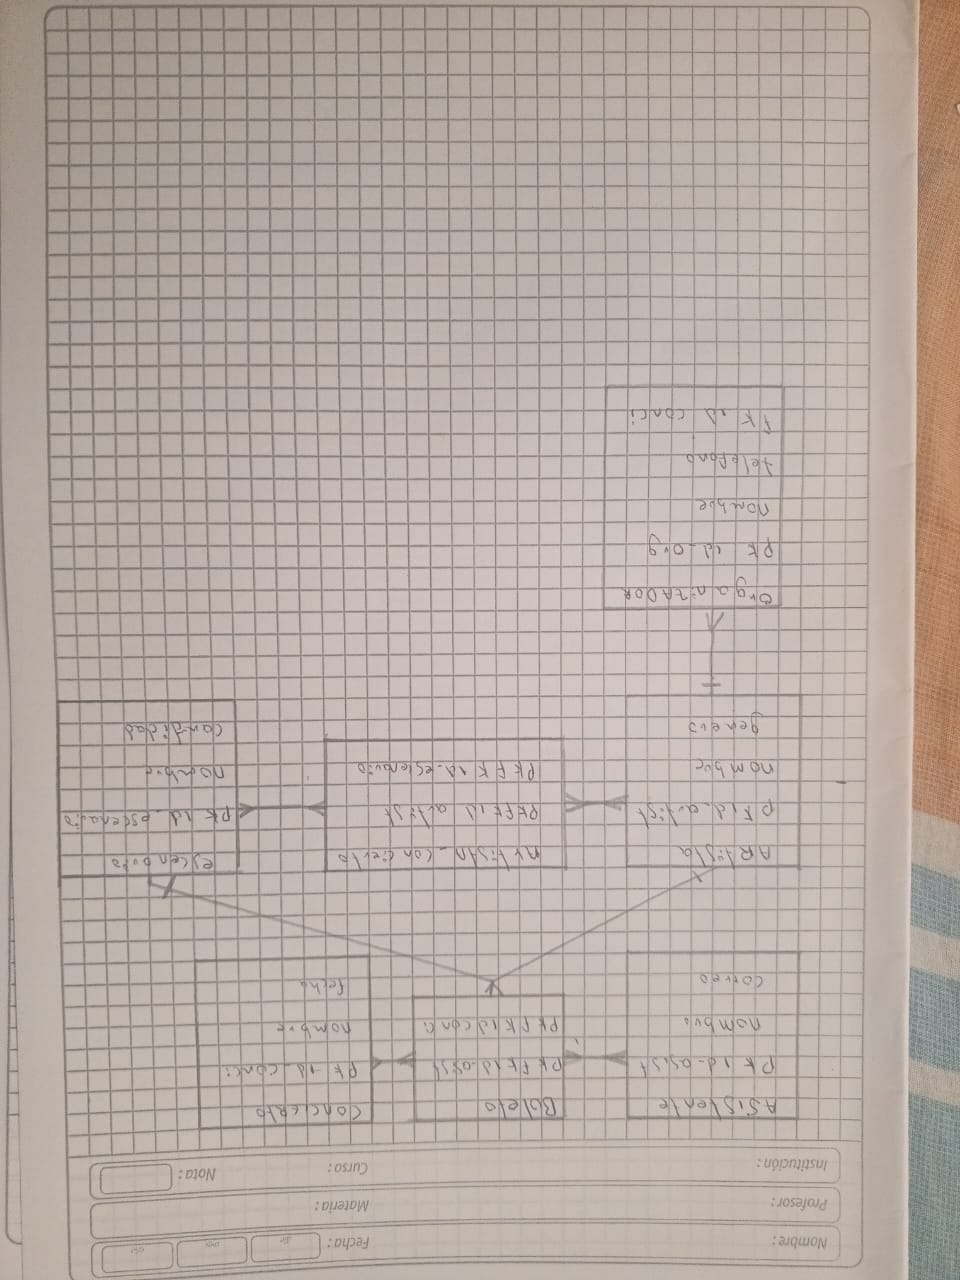 Nombre:
Fecha:
Profesor:
Materia:
Institución:
Curso:
Nota:
ASistente
PK id-asist
nombre
correo
Boleto
PK FK id-asist
PK FK id conci
CONCIERTO
PK id-conci
nombre
fecha
ARtista
PK id_artist
nombre
genero
ArtistA_concierto
PK FK id artist
PK FK id_escenario
escenario
PK id_escenario
nombre
OrganizADOR
PK id-org
nombre
telefono
FK id conci